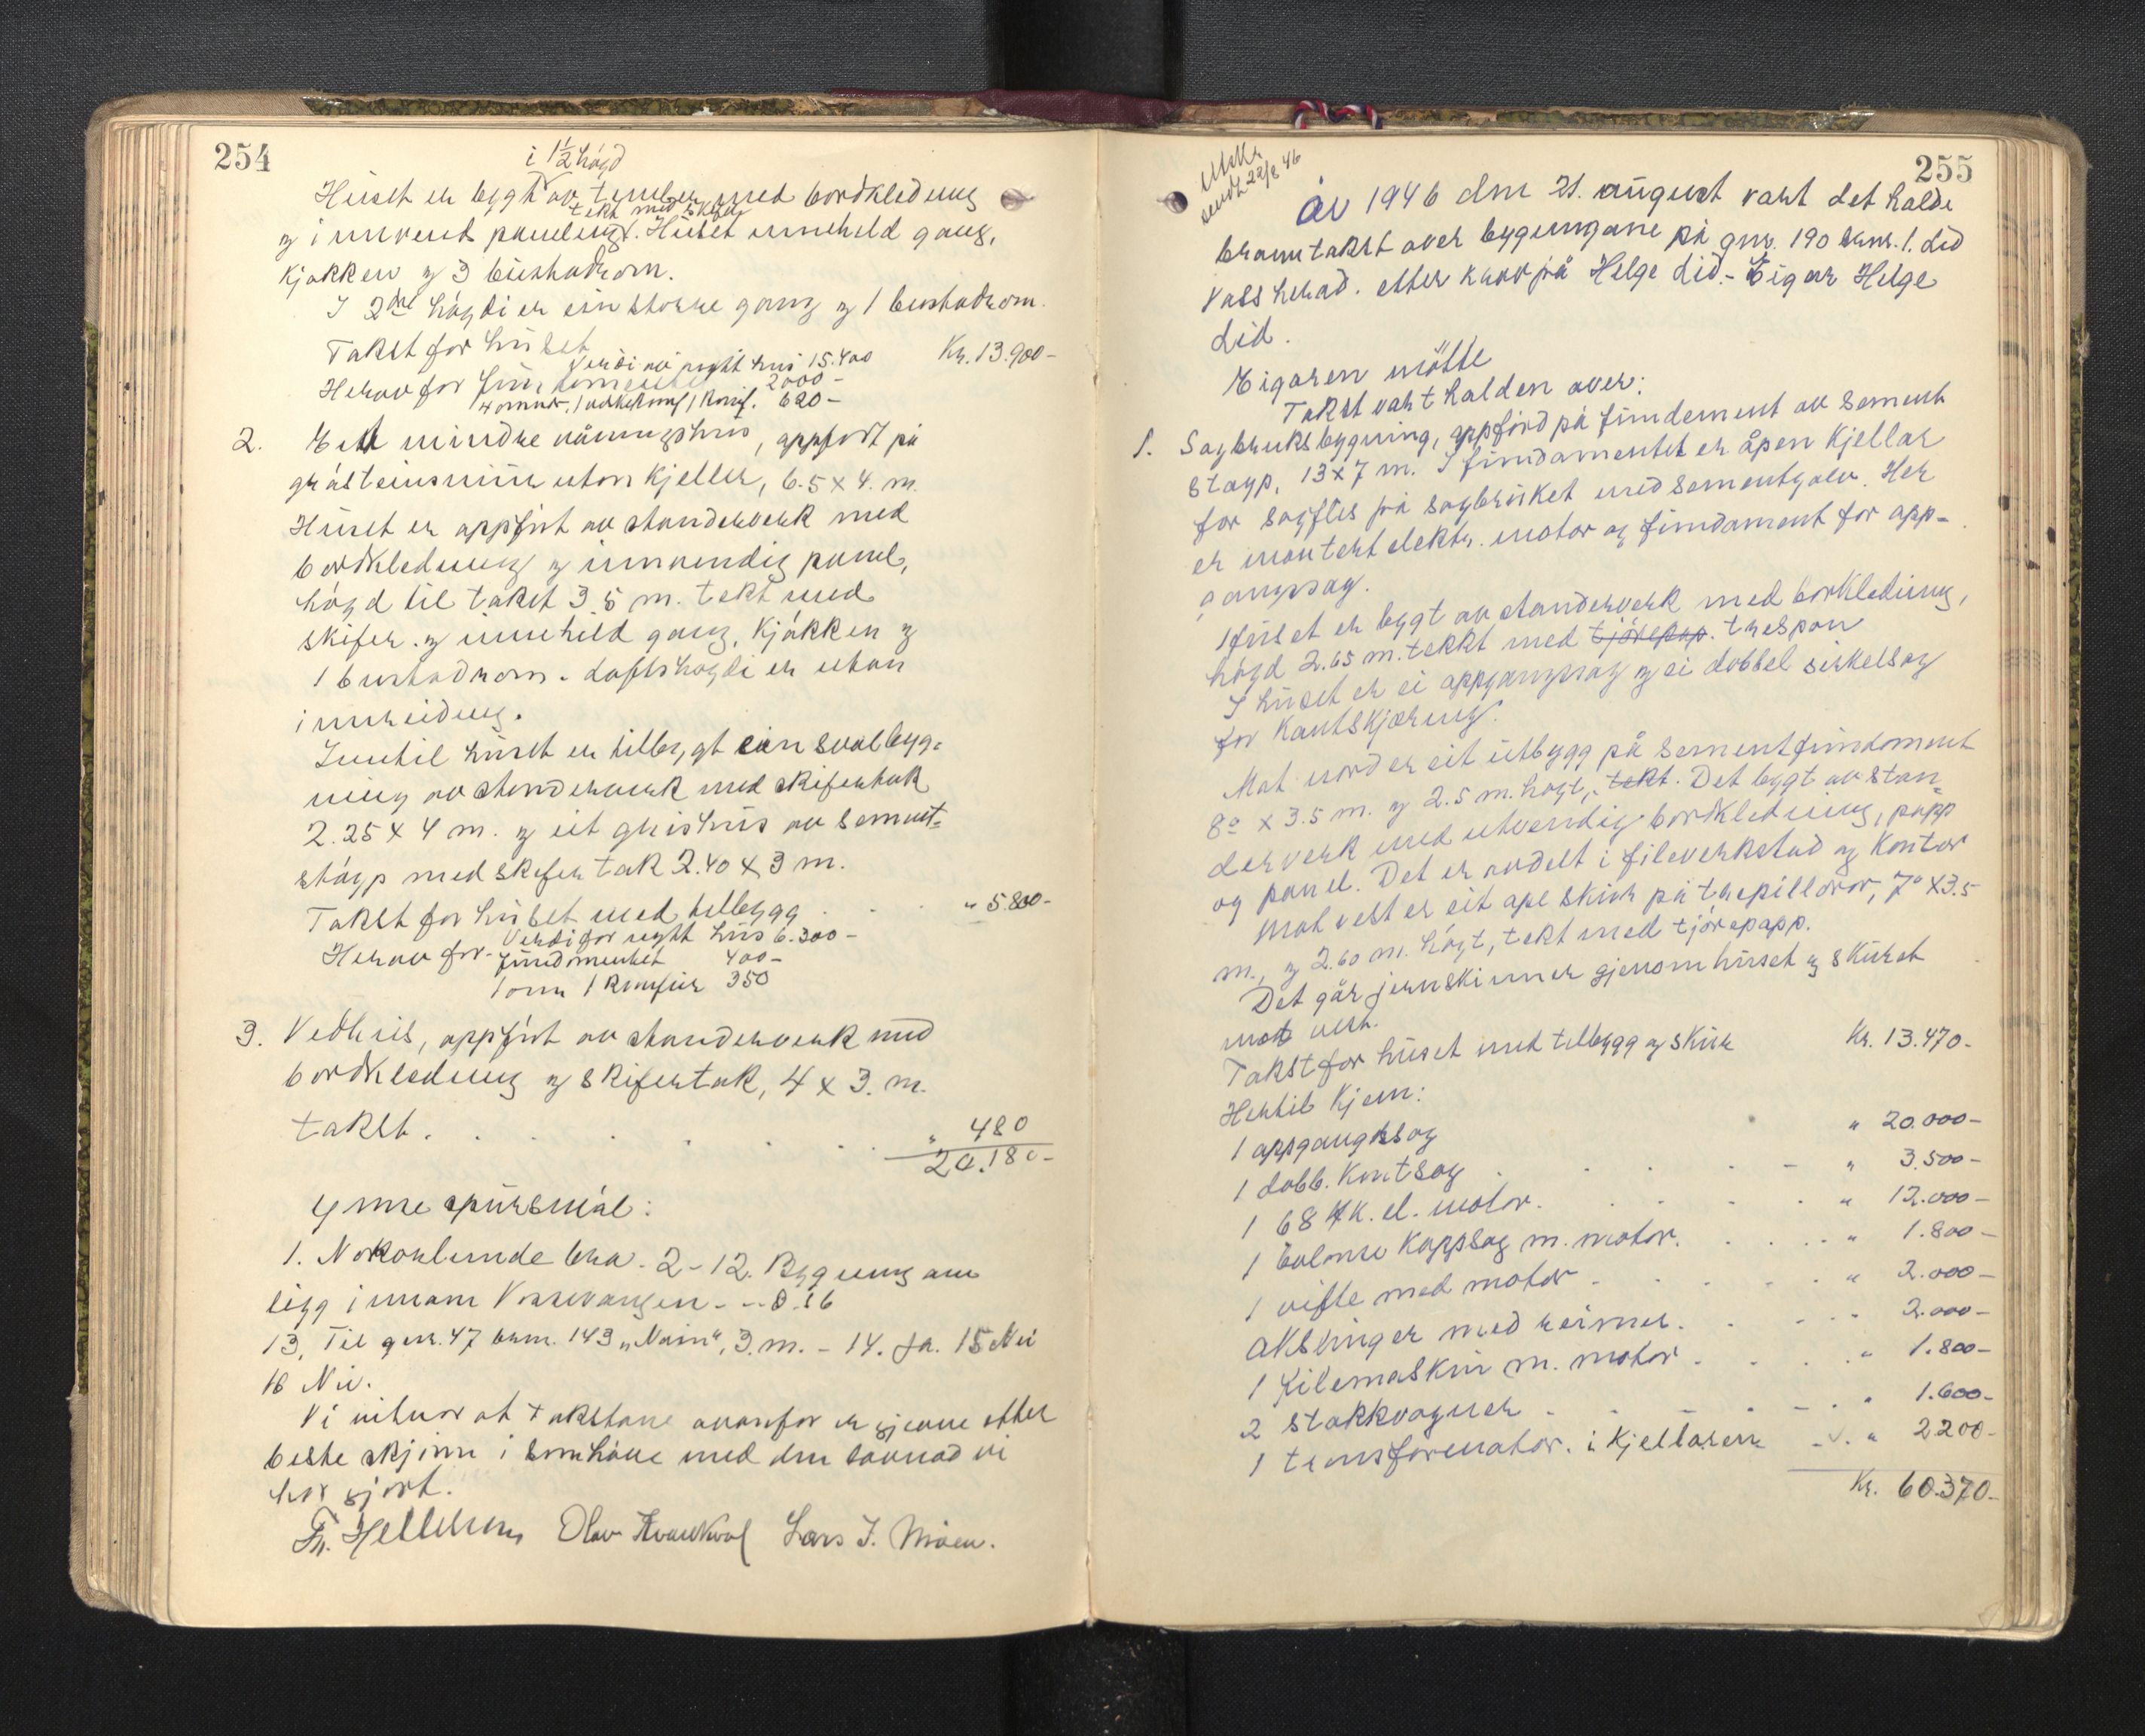 254
i 1½ høgd
Huset er bygt av tember med bordkledning
og innvend paneling. Huset inneheld gang,
tekt med skifer
kjøkken og 3 bustadrom.
I 2dre høgdi er ein større gang og 1 bustadrom.
Takst for huset Kr. 13.900-
Verdi av nytt hus 15.400
Herav for fundamentet 2000-
4 omnar, 1 vaskeomn, 1 komf. 620-
2. Eit mindre våningshus, oppført på
gråsteinsmur utan kjeller, 6.5 x 4. m.
Huset er oppført av standerverk med
bordkledning og innvendig panel,
høgd til taket 3.5 m. tekt med
skifer. og inneheld gang, kjøkken og
1 bustadrom. Loftshøgdi er utan
innreiding.
Inntil huset er tilbygt ein svalbyg-
ning av standerverk med skifertak
2.25 x 4 m. og eit grishus av sement-
støyp med skifer tak 2.40 x 3 m.
Takst for huset med tilbygg . . . " 5.800-
Verdi for nytt hus 6.300-
Herav for fundamentet 400-
1 omn 1 komfur 350
3. Vedhus, oppført av standerverk med
bordkledning og skifertak, 4 x 3. m.
takst . . . . . . " 480
20.180-
Ymse spursmål:
1. Nokonlunde bra. 2-12. Bygning an
ligg innan Vossevangen - - - 0.16
13. Til gnr. 47 bnr. 143 "Nain", 3. m. - 14. Ja. 15 Nei
16 Nei.
Vi vitnar at takstane ovanfor er gjevne etter
beste skjønn i samhøve med den kunnad vi
har gjort.
Olav Lars J. Moen.
255
Utskr.
sendt 22/8 46
År 1946 den 21. august vart det halde
branntakst over bygningane på gnr. 190 bnr. 1. Lid
Voss herad. etter krav frå Helge Lid. - Eigar Helge
Lid.
Eigaren møtte
Takst vart halden over:
1. Sagbruksbygning, oppførd på fundement av sement
støyp, 13 x 7 m. I fundamentet er åpen kjellar
for sagflis frå sagbruket med sementgolv. Her
er montert elektr. motor og fundament for opp-
gangssag.
Huset er bygt av standerverk med borkledning,
høgd 2.65 m. tekkt med tjørepap. trespon
I huset er ei oppgangssag og ei dobbel sirkelsag
for kantskjæring.
Mot nord er eit utbygg på sementfundament
8º x 3.5 m. og 2.5 m. høgt, tekt. Det bygt av stan-
derverk med utvendig bordkledning, papp
og panel. Det er avdelt i fileverkstad og kontor
Mot vest er eit ope skur på trepillarar, 7º x 3.5
m., og 2.60 m. høgt, tekt med tjørepapp.
Det går jernskinner gjenom huset og skuret
mot vest.
Takst for huset med tilbygg og skur Kr. 13.470-
Hertil kjem:
1 oppgangssag " 20.000-
1 dobb. kantsag . . . . - " 3.500-
1 68 HK. el. motor. . . . . " 12.000-
1 balanse kappsag m. motor. . . . . " 1.800-
1 vifte med motor . . . . . " 2.000-
Akslinger med reimer. . . . . 2.000-
1 filemaskin m. motor . . . . " 1.800-
2 stokkvogner . . . . . " 1.600-
1 transformator. i kjellaren . . " 2200-
Kr. 60.370-